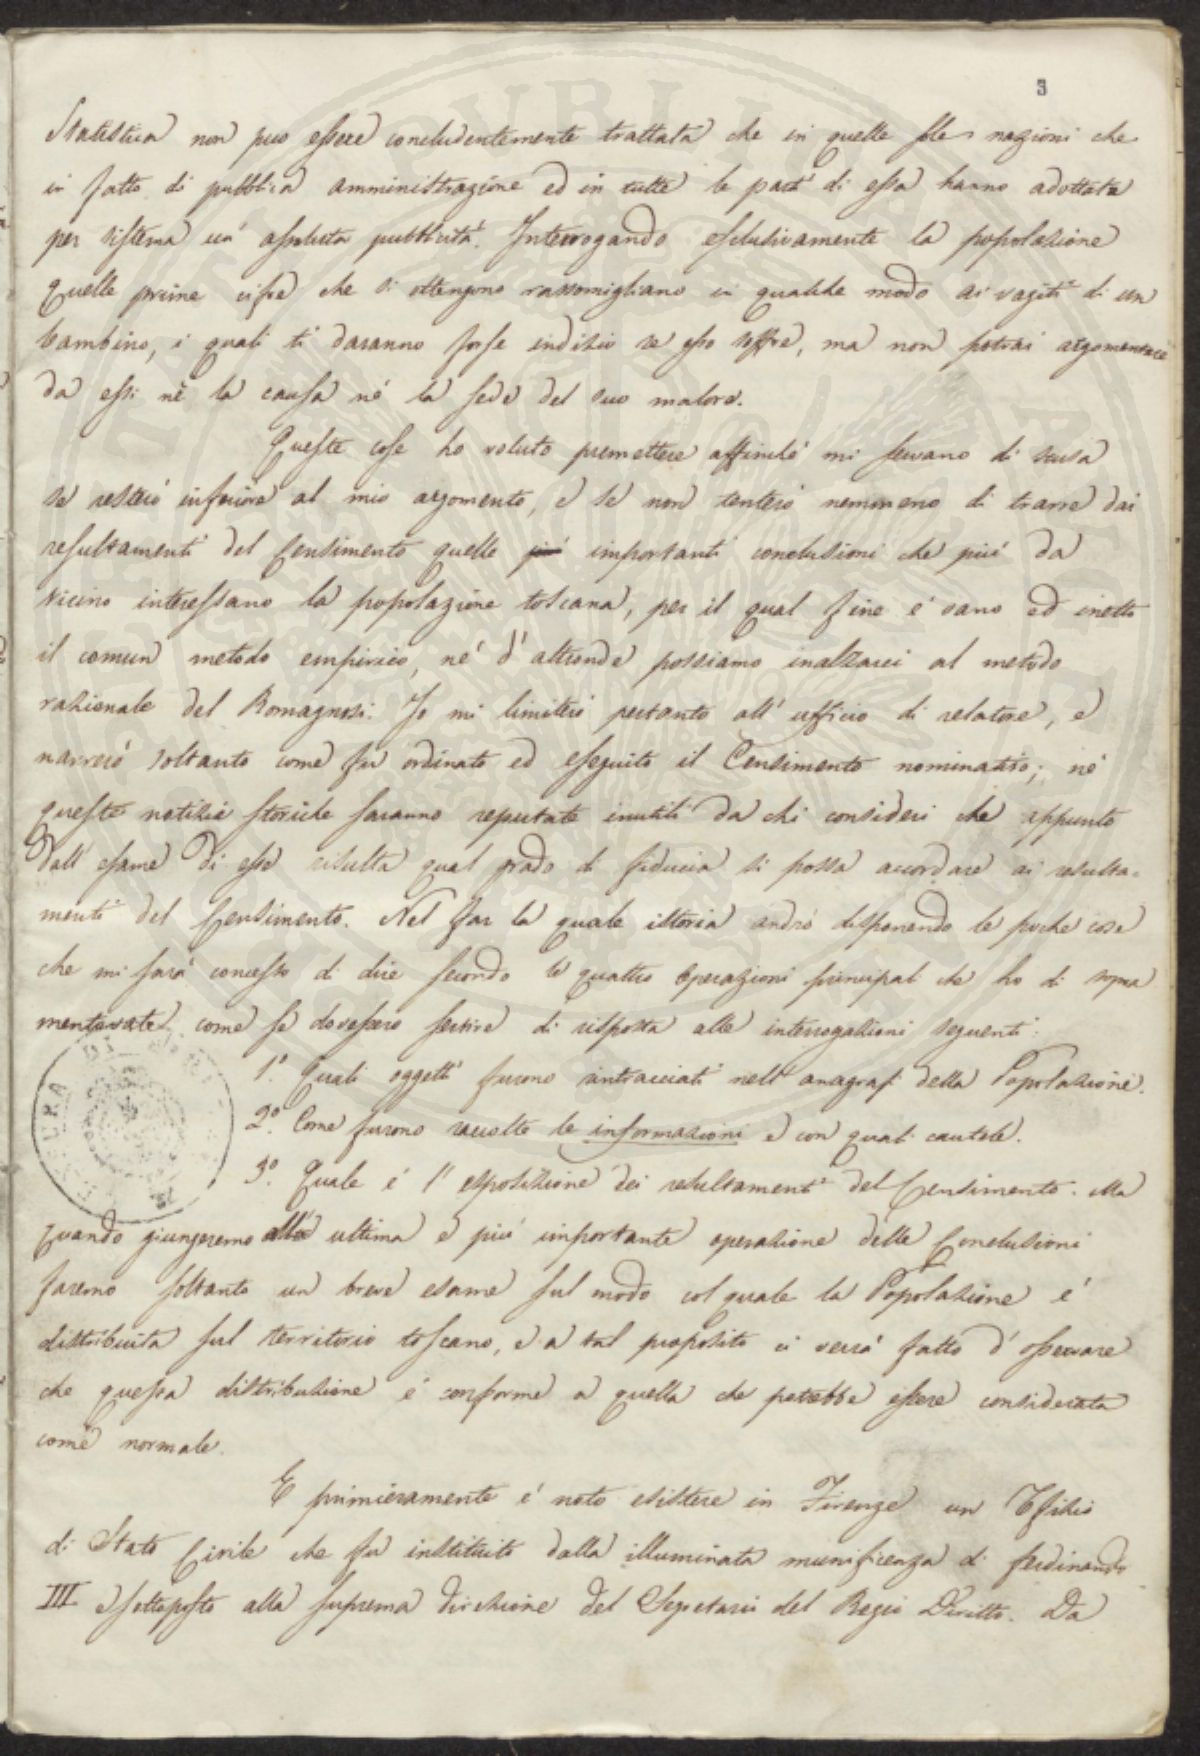 3
Statistica non può essere concludentemente trattata che in quelle sole nazioni che
in fatto di pubblica amministrazione ed in tutte le parti di essa hanno adottata
per sistema un' assoluta pubblicità. Interrogando esclusivamente la popolazione
quelle prime cifre che si ottengono rassomigliano in qualche modo ai vagiti di un
bambino, i quali ti daranno forse indizio se esso soffre, ma non potrai argomentare
da essi nè la causa nè la sede del suo malore.
Queste cose ho voluto premettere affinchè mi servano di scusa
se resterò inferiore al mio argomento, e se non tenterò nemmeno di trarre dai
resultamenti del Censimento quelle più importanti conclusioni che più da
vicino interessano la popolazione toscana, per il qual fine è vano ed inetto
il comun metodo empirico, nè d' altronde possiamo inalzarci al metodo
razionale del Romagnosi. Io mi limiterò pertanto all' ufficio di relatore, e
narrerò soltanto come fu ordinato ed eseguito il Censimento nominativo; nè
queste notizie storiche saranno reputate inutili da chi consideri che appunto
dall' esame di esse risulta qual grado di fiducia si possa accordare ai resulta-
menti del Censimento. Nel far la quale istoria andrò disponendo le poche cose
che mi sarà concesso di dire secondo le quattro operazioni principali che ho di sopra
mentovate, come se dovessero servire di risposta alle interrogazioni seguenti:
1.° Quali oggetti furono rintracciati nell' anagrafi della Popolazione.
2.° Come furono raccolte le informazioni e con quali cautele.
3.° Quale è l' esposizione dei resultamenti del Censimento. Ma
quando giungeremo alla ultima e più importante operazione delle Conclusioni
faremo soltanto un breve esame sul modo col quale la Popolazione è
distribuita sul territorio toscano, e a tal proposito ci verrà fatto d' osservare
che questa distribuzione è conforme a quella che potrebbe essere considerata
come normale.
E primieramente è noto esistere in Firenze un Ufizio
di Stato Civile che fu instituito dalla illuminata munificenza di Ferdinando
III e sottoposto alla suprema direzione del Segretario del Regio Diritto. Da